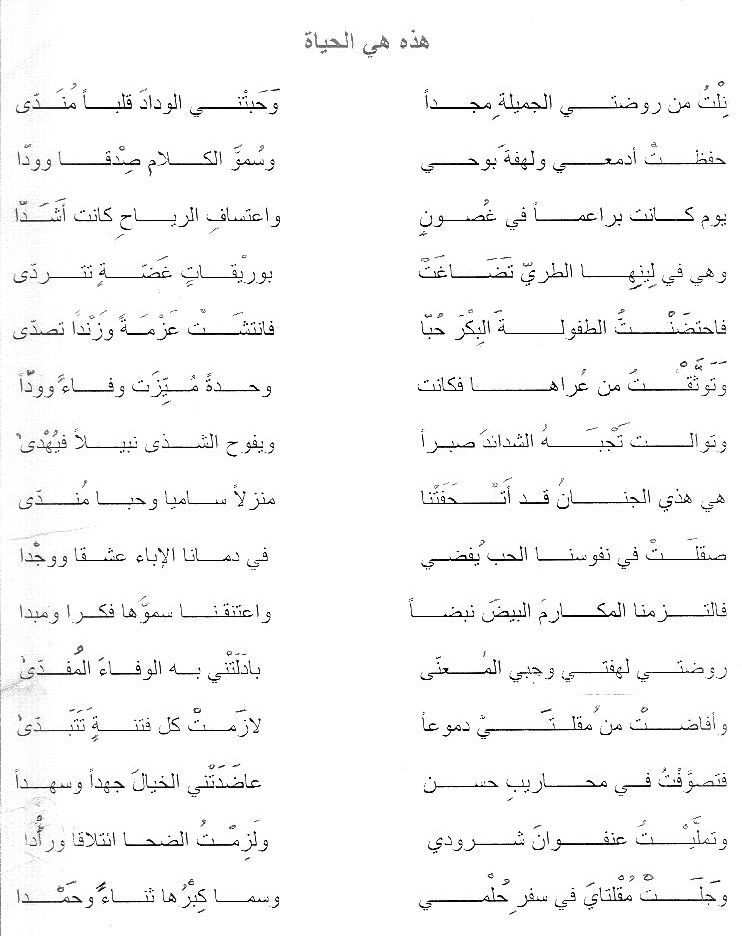 هذه هي الحياة
نِلْتُ من روضتي الجميلةِ مجداً وَحَبتْني الودادَ قلباً مُنَدّى
حفظتْ أدمعي ولهفةَ بوحي وسُموَّ الكلام صِدْقا وودّا
يوم كانت براعماً في غُصونٍ واعتسافِ الرياحِ كانت أشَدّا
وهي في لِينِها الطريِّ تضَاغَتْ بوريْقاتٍ غَضّةٍ تتردّى
فاحتضَنْتُ الطفولةَ البِكْرَ حُبّا فانتشَتْ عَزْمَةً وزَنْداً تصدّى
وَتوَثَّقْتُ من عُراها فكانت وحدةً مُيِّزَت وفاءً وودّاً
وتوالت تَجْبَهُ الشدائدَ صبراً ويفوح الشذى نبيلاً فيُهْدى
هي هذي الجنانُ قد أتْحَفَتْنا منزلاً ساميا وحبا مُندّى
صقلَتْ في نفوسنا الحب يُفضي في دمانا الإباء عشقا ووجْدا
فالتزمنا المكارمَ البيضَ نبضاً واعتنقنا سموَّها فكرا ومبدا
روضتي لهفتي وحبي المُعنّى بادَلَتْني به الوفاءَ المُفدّى
وأفاضتْ من مُقلتَيْ دموعاً لازَمتْ كل فتنةٍ تَتَبَدّى
فتصوّفْتُ في محاريبِ حسن عاضَدَتْني الخيالَ جهداً وسهداً
وتملَّيْتُ عنفوانَ شرودي ولَزِمْتُ الضحا ائتلاقا ورأْدا
وجَلَتْ مُقْلتايَ في سفرِ حُلْمي وسما كِبْرُها ثناءً وحَمْدا